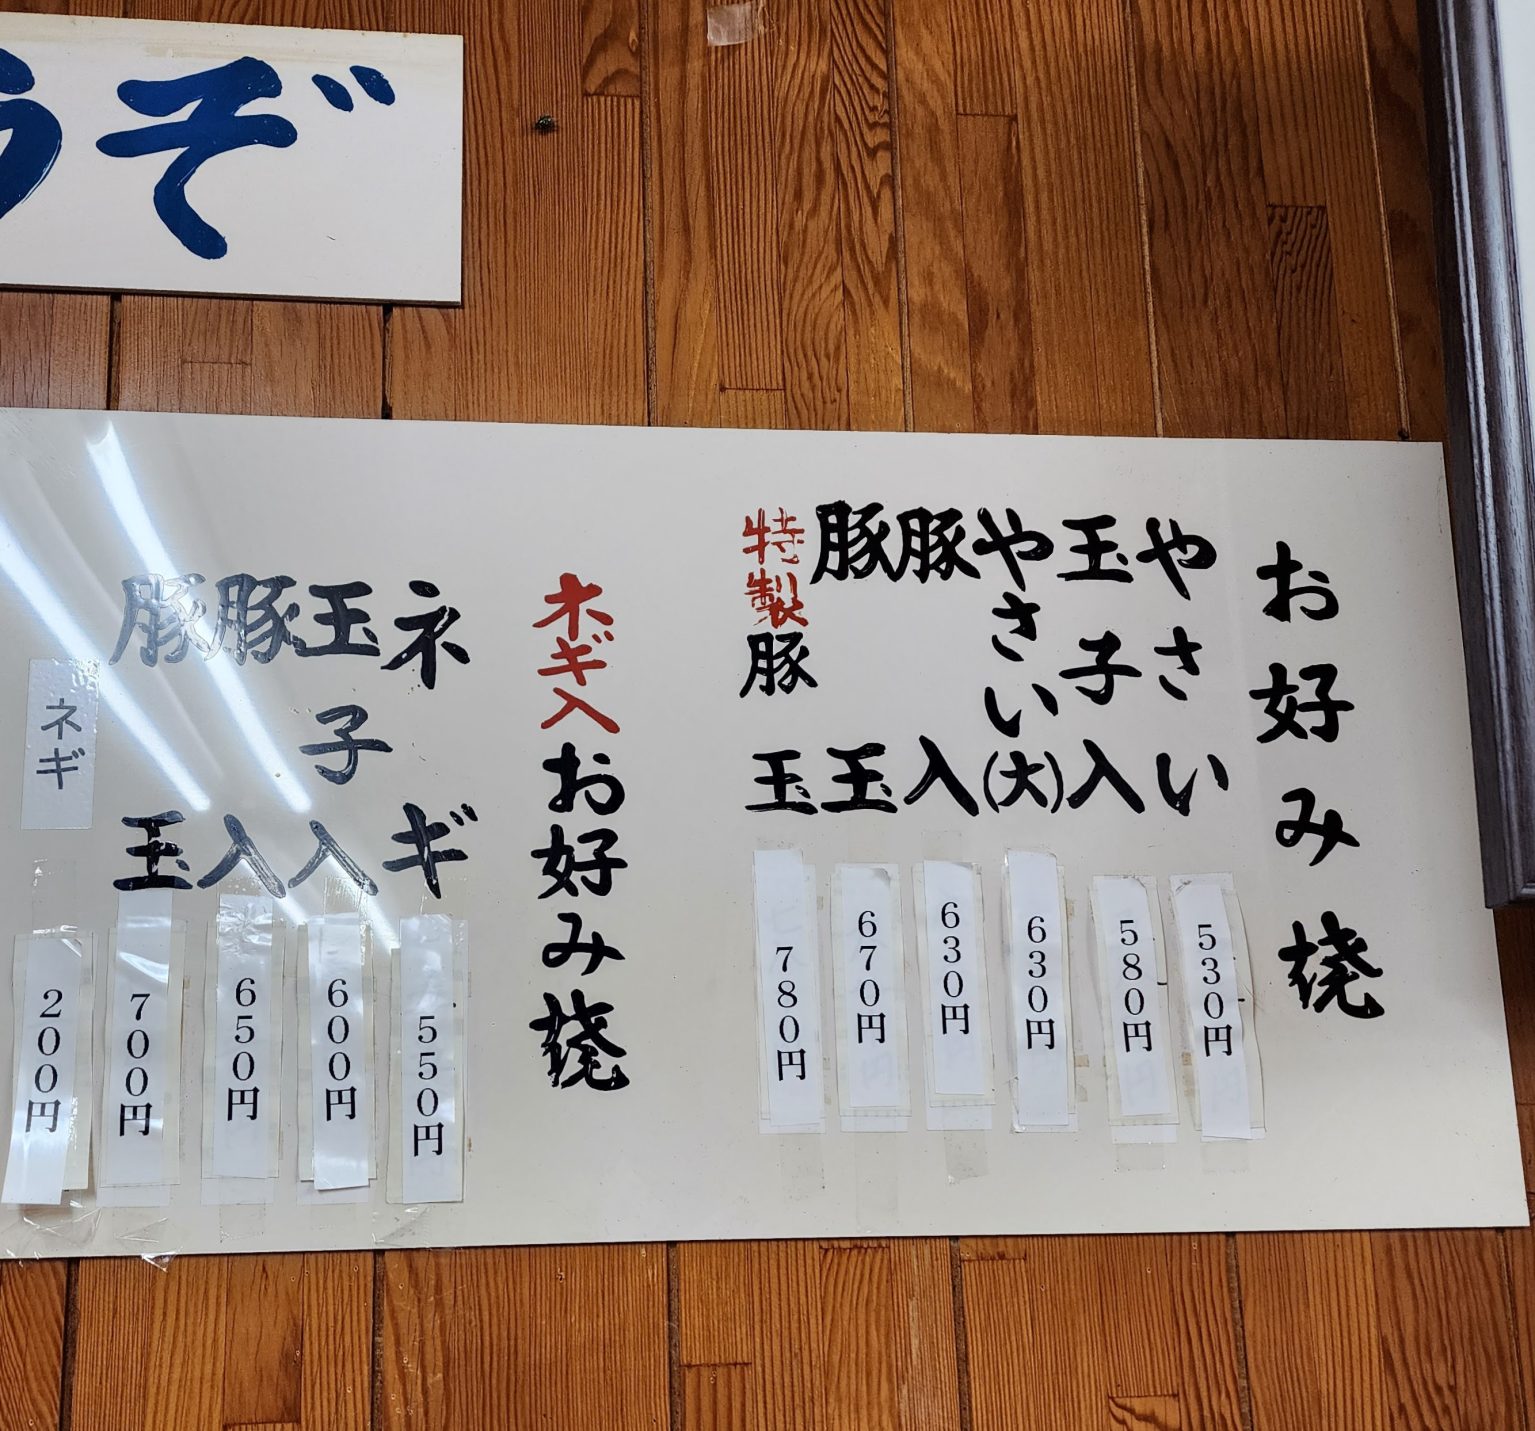 うぞ
お好み焼
やさい 530円
玉子入 580円
やさい(大) 630円
豚入 630円
豚玉 670円
特製豚玉 780円
ネギ入お好み焼
ネギ 550円
玉子入 600円
豚入 650円
豚玉 700円
ネギ 200円